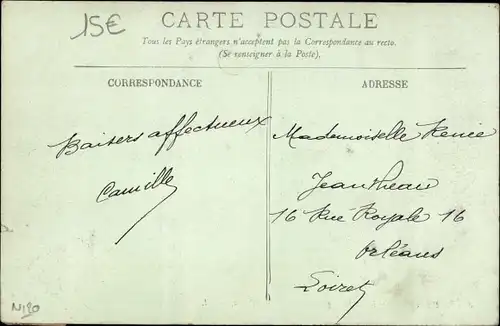 15€
CARTE POSTALE
Tous les Pays étrangers n'acceptent pas la Correspondance au recto.
(Se renseigner à la Poste).
CORRESPONDANCE
Baisers affectueux
Camille
ADRESSE
Mademoiselle Renée
Jeantheau
16 Rue Royale 16
Orléans
Loiret